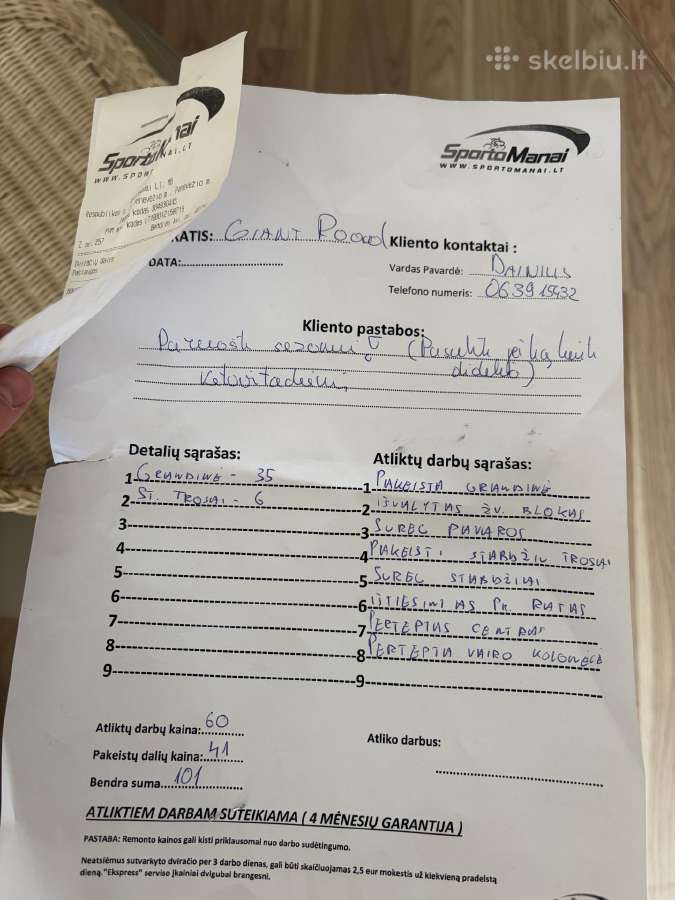 skelbiu.lt
SportoManai
WWW.SPORTOMANAI.LT
SportoManai
WWW.SPORT
NAI.LT
Z nr. 257
RATIS: GIANT ROOAD
Kliento kontaktai :
DATA:
Vardas Pavardė: DAINIUS
Telefono numeris: 063919432
Kliento pastabos:
Paruošti sezonui (
Detalių sąrašas:
1 GRANDINĖ - 35
2 ST. TROSAI - 6
3
4
5
6
7
8
9
Atliktų darbų sąrašas:
1 PAKEISTA GRANDINĖ
2 IŠVALYTAS ŽV. BLOKAS
3 SUREG PAVAROS
4 PAKEISTI STABDŽIŲ TROSAI
5 SUREG STABDŽIAI
6 IŠTIESINTAS PR. RATAS
7 PERTEPTAS CENTRAS
8 PERTEPTA VAIRO KOLONĖLĖ
9
Atliktų darbų kaina: 60
Pakeistų dalių kaina: 41
Bendra suma 101
Atliko darbus:
ATLIKTIEM DARBAM SUTEIKIAMA ( 4 MĖNESIŲ GARANTIJA )
PASTABA: Remonto kainos gali kisti priklausomai nuo darbo sudėtingumo.
Neatsėmus sutvarkyto dviračio per 3 darbo dienas, gali būti skaičiuojamas 2,5 eur mokestis už kiekvieną pradelstą
dieną."Ekspress" serviso įkainiai dvigubai brangesni.